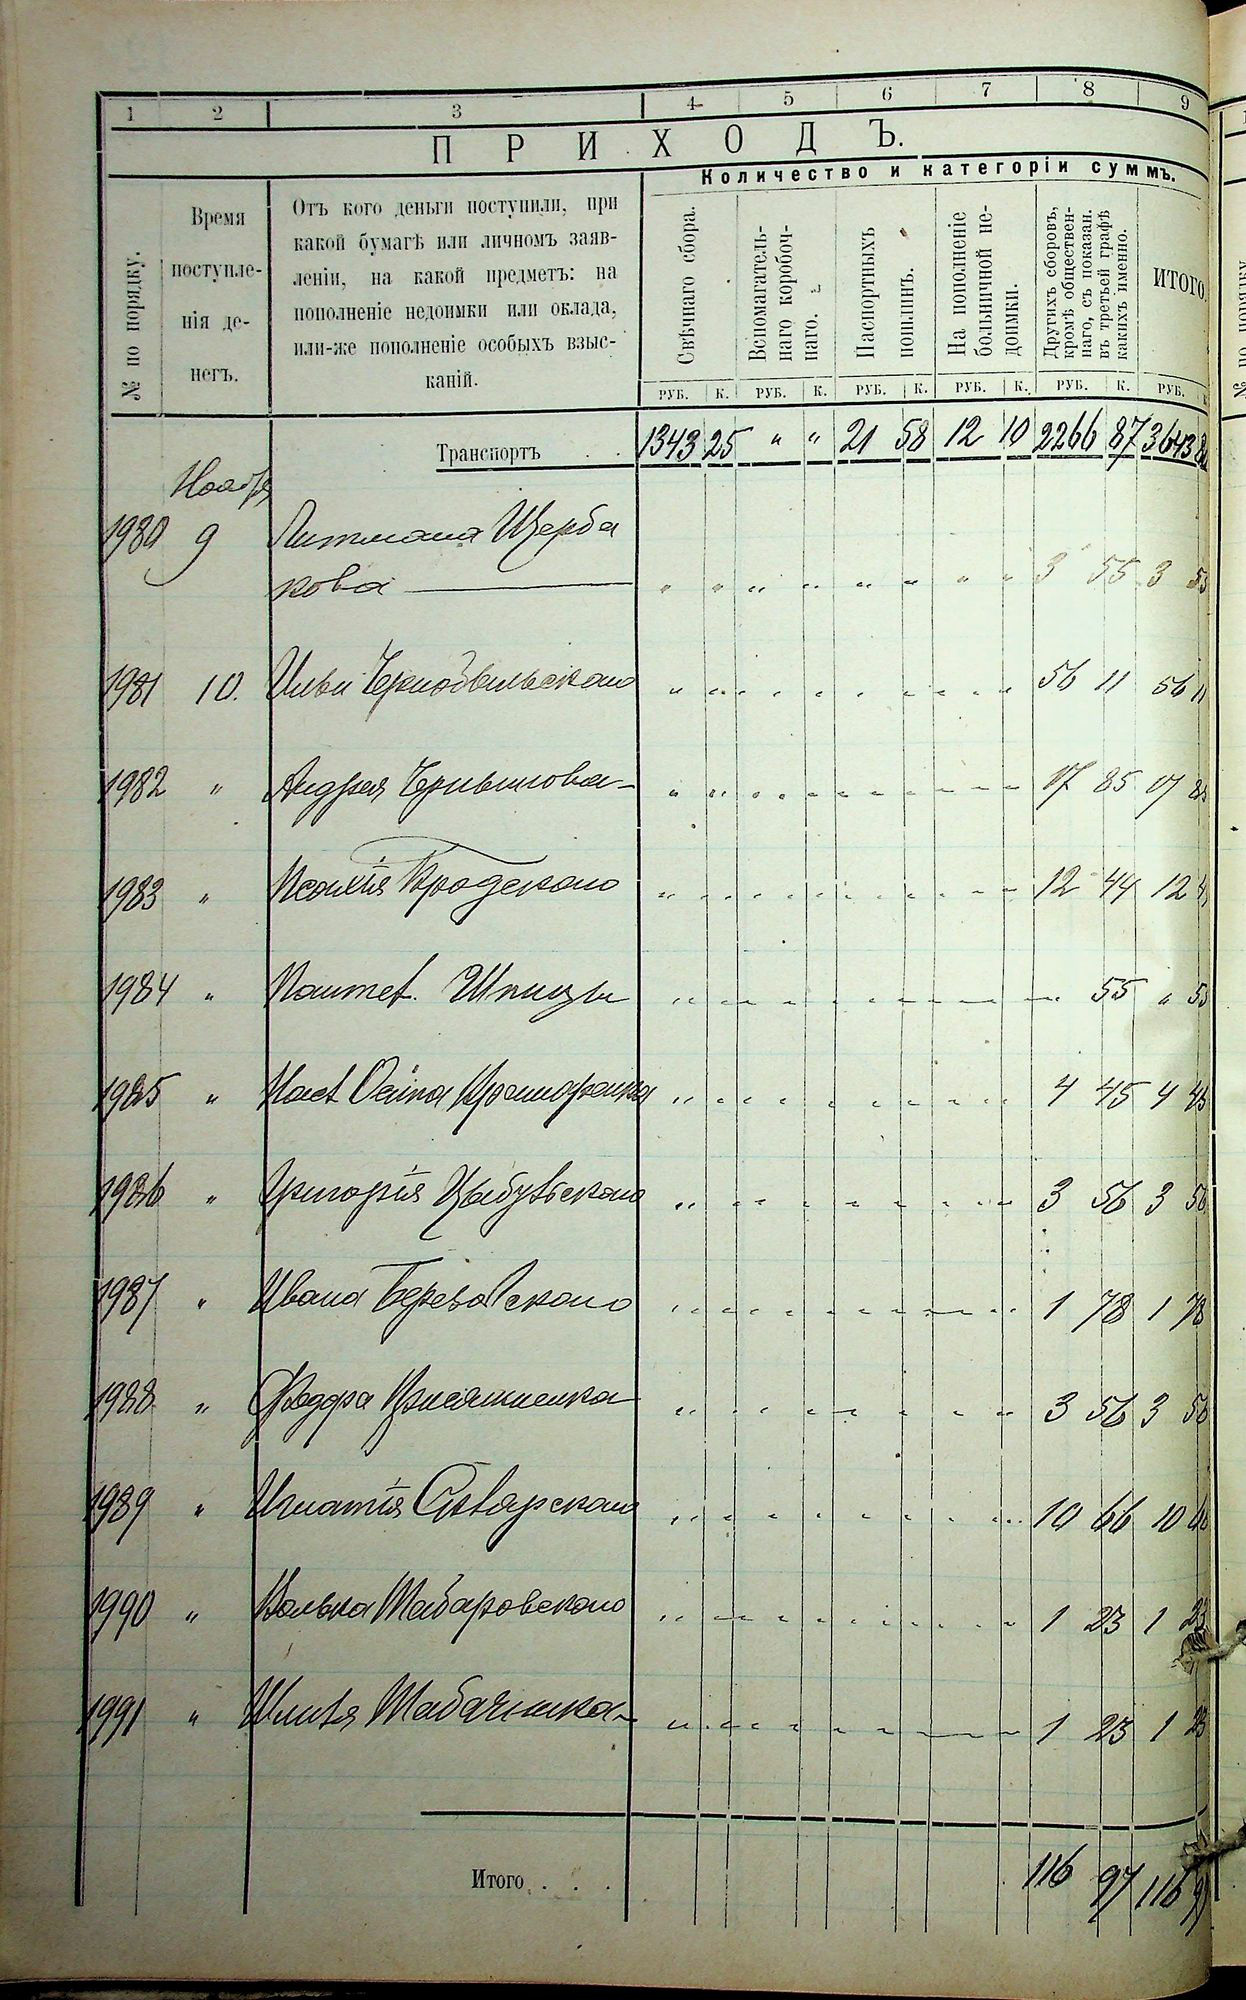 1 2 3 4 5 6 7 8 9
ПРИХОДЪ.
Количество и категоріи суммъ.
№ по порядку.
Время поступле-
нія де-
негъ.
Отъ кого деньги поступили, при
какой бумагѣ или личномъ заяв-
леніи, на какой предметъ: на
пополненіе недоимки или оклада,
или-же пополненіе особыхъ взыс-
каній.
Свѣчнаго сбора.
Вспомагатель-
наго коробоч-
наго.
Паспортныхъ
пошлинъ.
На пополненіе
больничной не-
доимки.
Другихъ сборовъ,
кромѣ обществен-
наго, съ показан.
въ третьей графѣ
какихъ именно.
ИТОГО.
РУБ. К. РУБ. К. РУБ. К. РУБ. К. РУБ. К. РУБ.
Транспортъ . . 1343 25 " " 21 58 12 10 2266 87 3643
Ноября
1980 9 Литмана Щерба
кова 3 55 3 55
1981 10. 56 11 56 11
1982 " Андрея 17 85 17 85
1983 " Бродскаго 12 44 12 44
1984 " Шпицы 55 " 55
1985 " 4 45 4 45
1986 " Григорія 3 56 3 56
1987 " Ивана 1 78 1 78
1988 " 3 56 3 56
1989 " Игнатія 10 66 10 66
1990 " Волька 1 23 1 23
1991 " Табачника 1 23 1 23
Итого . . . 116 97 116 97